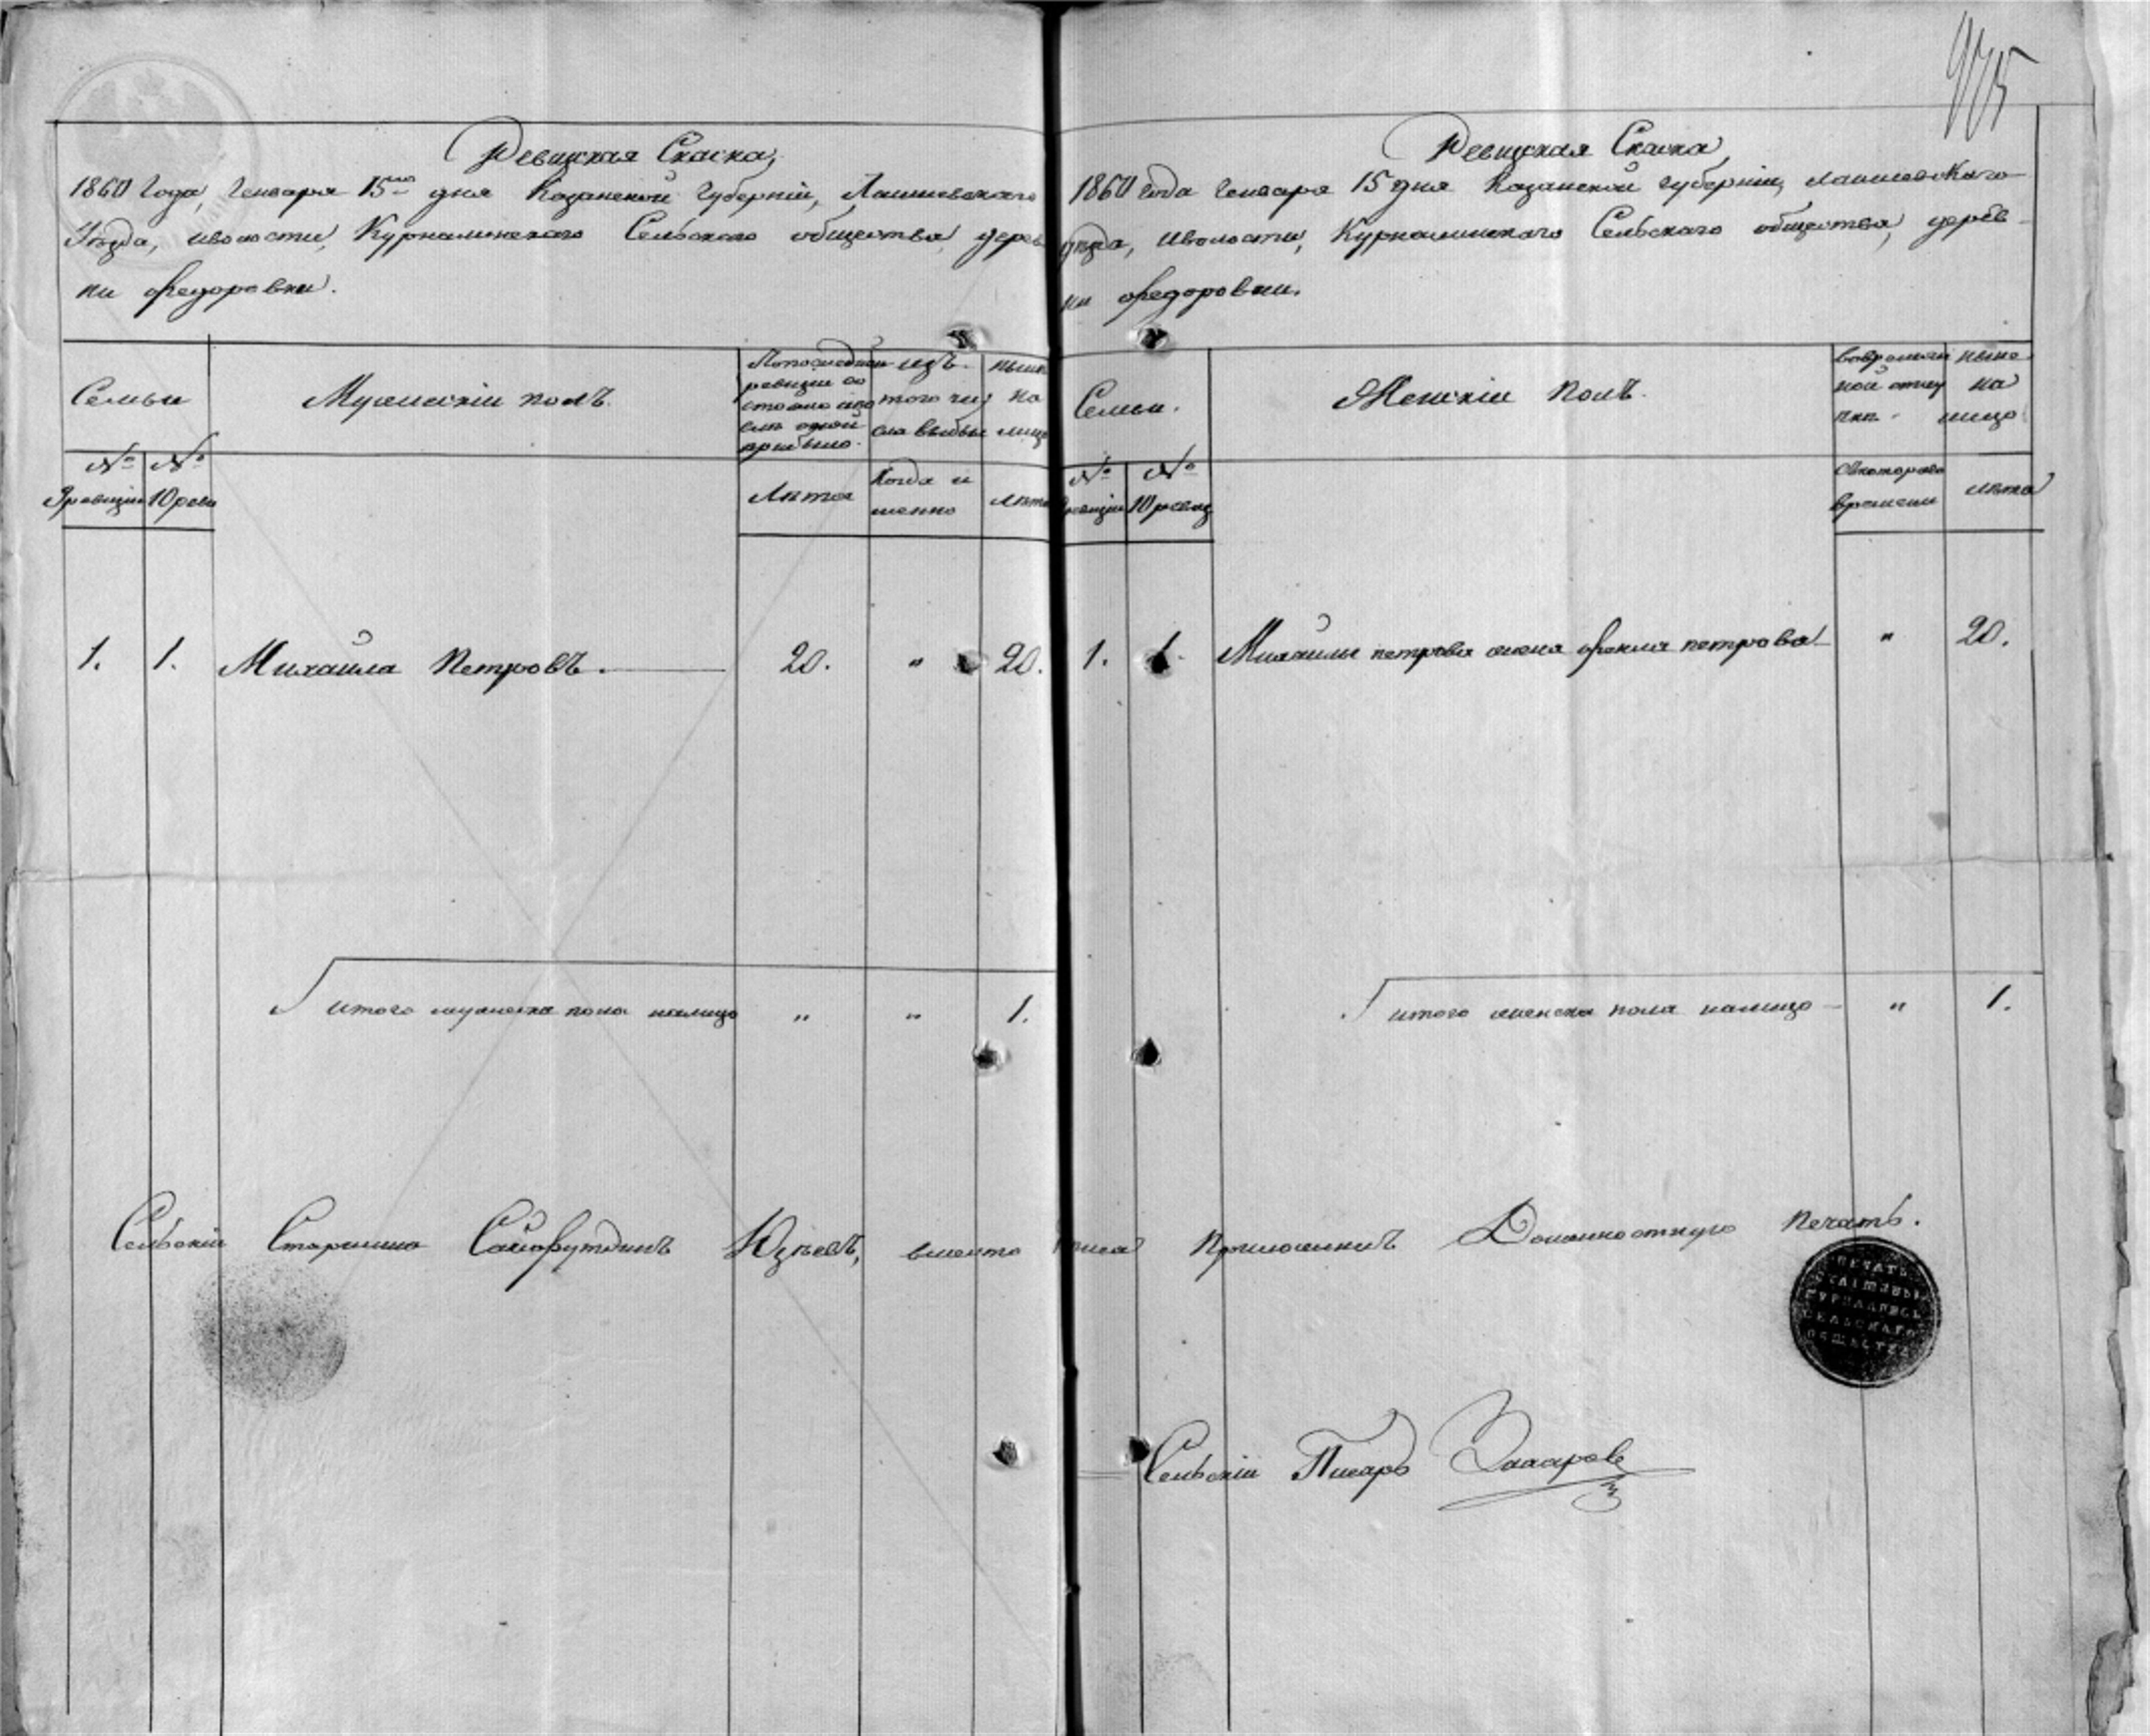 975
Ревизская Сказка,
1860 Года, Генваря 15го дня Казанской Губерніи, Лаишевскаго
Уезда, и волости, Курналинскаго Сельскаго общества, дерев
ни Федоровки.
Семьи
Мужескій полъ.
По последней
ревизіи со
стояло или
после оной
прибыло.
изъ
того чи
сла выбы
ныне
на
лицо
№ №
9 ревизіи 10 реви
Лета
Когда и
менно
лета
1. 1. Михайла Петровъ. 20. " 20.
итого мужеска пола налицо " " 1.
Ревизская Сказка
1860 года Генваря 15 дня Казанской губерніи, Лаишевскаго
уезда, и волости, Курналинскаго Сельскаго общества, дерев
ни Федоровки.
Семьи.
Женскій Полъ.
во времян
ной отлу
чке
ныне
на
лицо
№ №
ревизіи 10 ревиз
Скотораго
времени
лета
1. 1. Михайлы петрова жена Фекла петрова " 20.
итого женска пола налицо " 1.
Сельскій Старшина Сайфутдинъ Юзеевъ, вместо приложилъ Должностную Печать.
ПЕЧАТЬ
СЕЛЬСКАГО
ОБЩЕСТВА
Сельскій Писарь Захаров